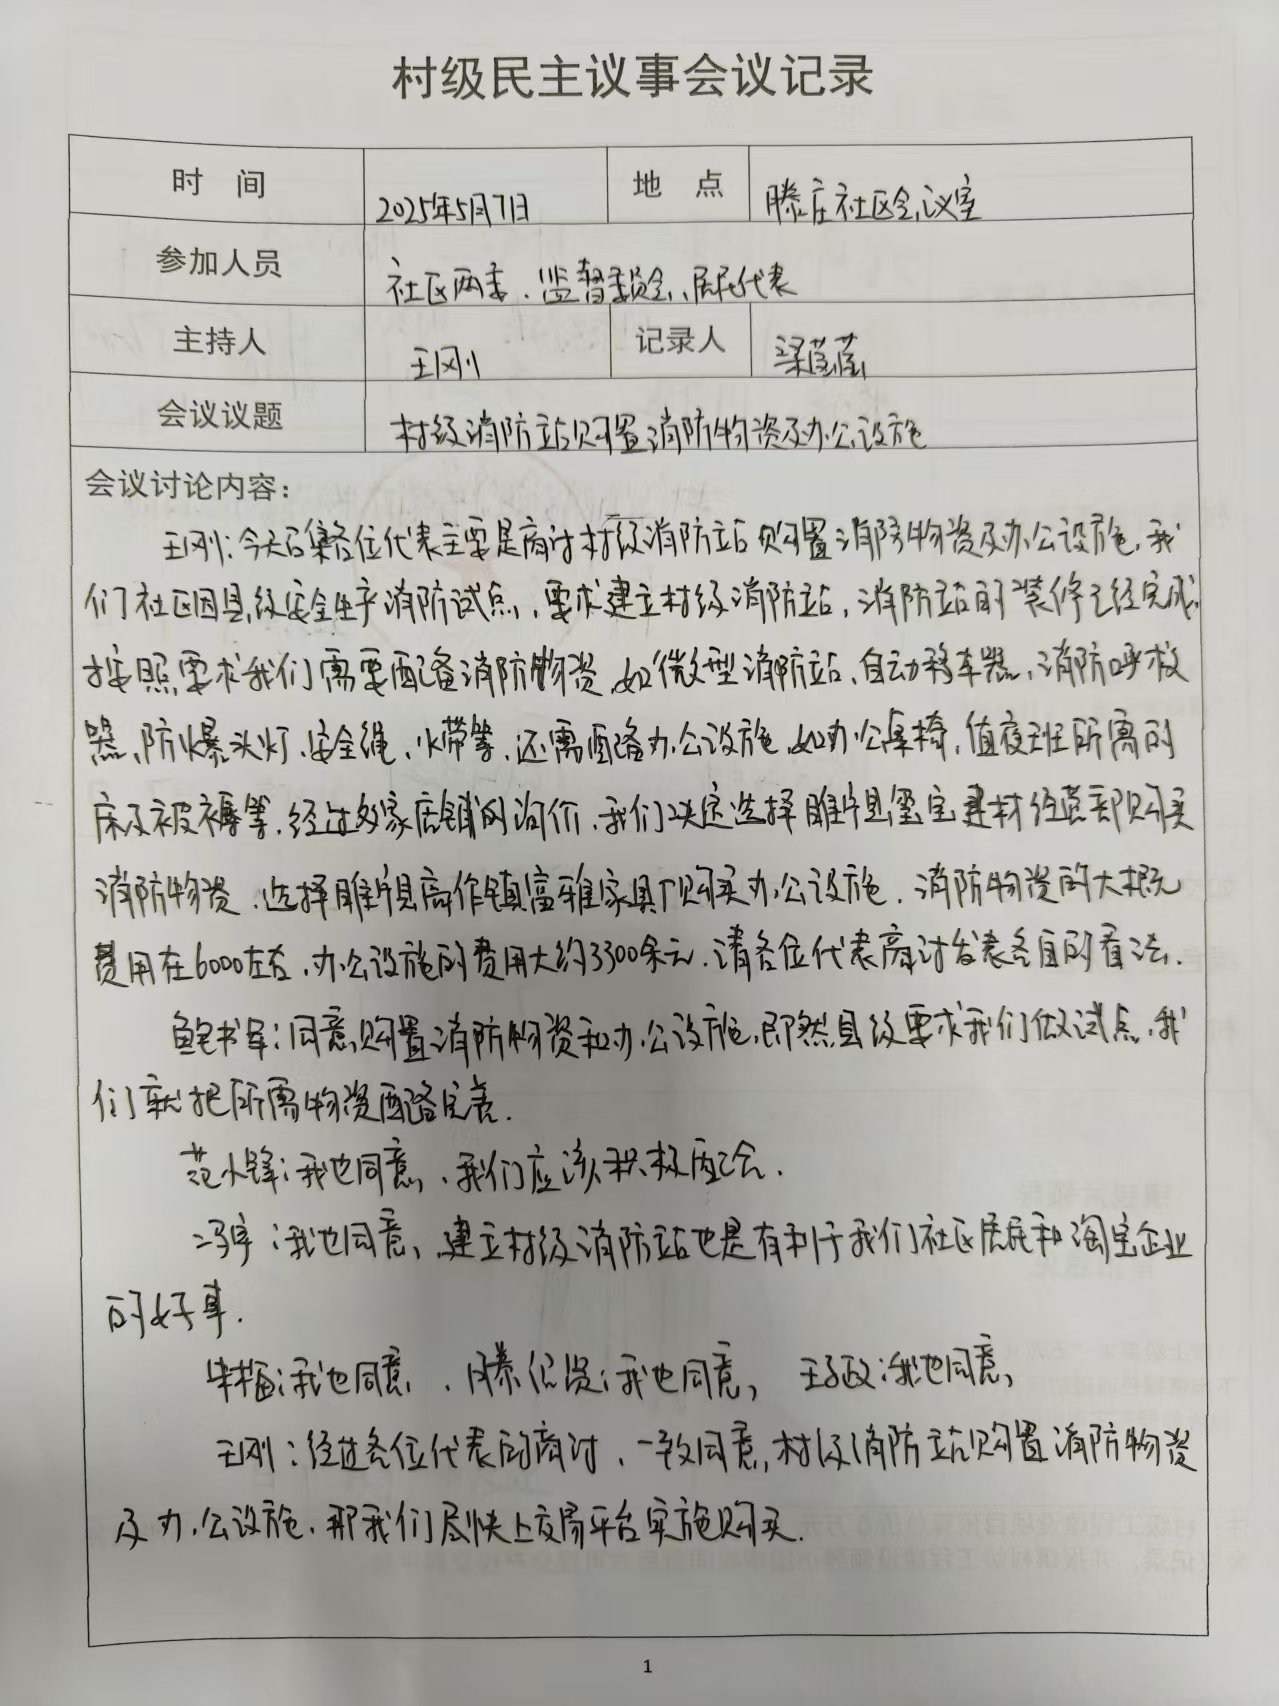 村级民主议事会议记录
时 间 2025年5月7日 地 点 滕庄社区会议室
参加人员 社区两委、监督委员会、居民代表
主持人 王刚 记录人 梁莹莹
会议议题 村级消防站购置消防物资及办公设施
会议讨论内容：
王刚：今天召集各位代表主要是商讨村级消防站购置消防物资及办公设施，我
们社区因县级安全生产消防试点，要求建立村级消防站，消防站的装修已经完成，
按照要求我们需要配备消防物资，如微型消防站、自动移车器、消防呼救
器、防爆头灯、安全绳、水带等，还需配备办公设施，如办公桌椅，值夜班所需的
床及被褥等，经过多家店铺的询价，我们决定选择睢县玺宝建材经营部购买
消防物资，选择睢县商作镇富雅家具厂购买办公设施，消防物资的大概
费用在6000左右，办公设施的费用大约3300余元，请各位代表商讨发表各自的看法。
鲍书军：同意购置消防物资和办公设施，即然县级要求我们做试点，我
们就把所需物资配备完善。
范小锋：我也同意，我们应该积极配合。
冯宇：我也同意，建立村级消防站也是有利于我们社区居民和淘宝企业
的好事。
：我也同意，滕：我也同意，王政：我也同意，
王刚：经过各位代表的商讨，一致同意，村级消防站购置消防物资
及办公设施，那我们尽快上交易平台实施购买。
1